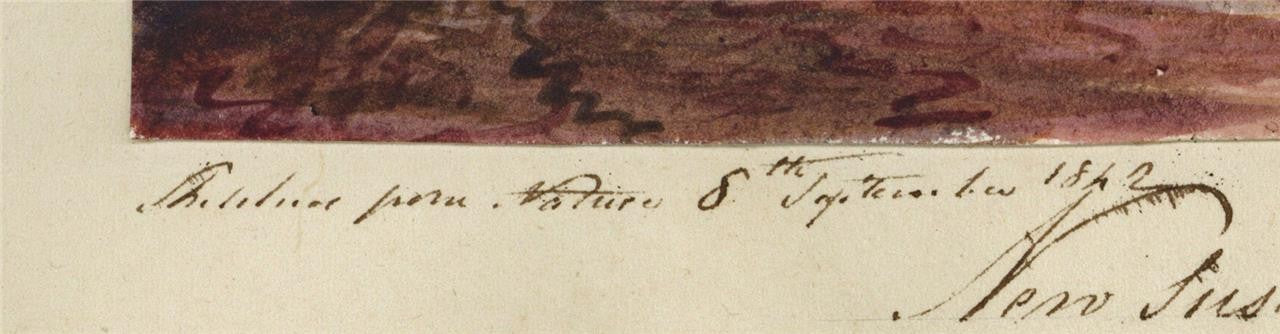 Sketched from Nature 8th September 1842
New